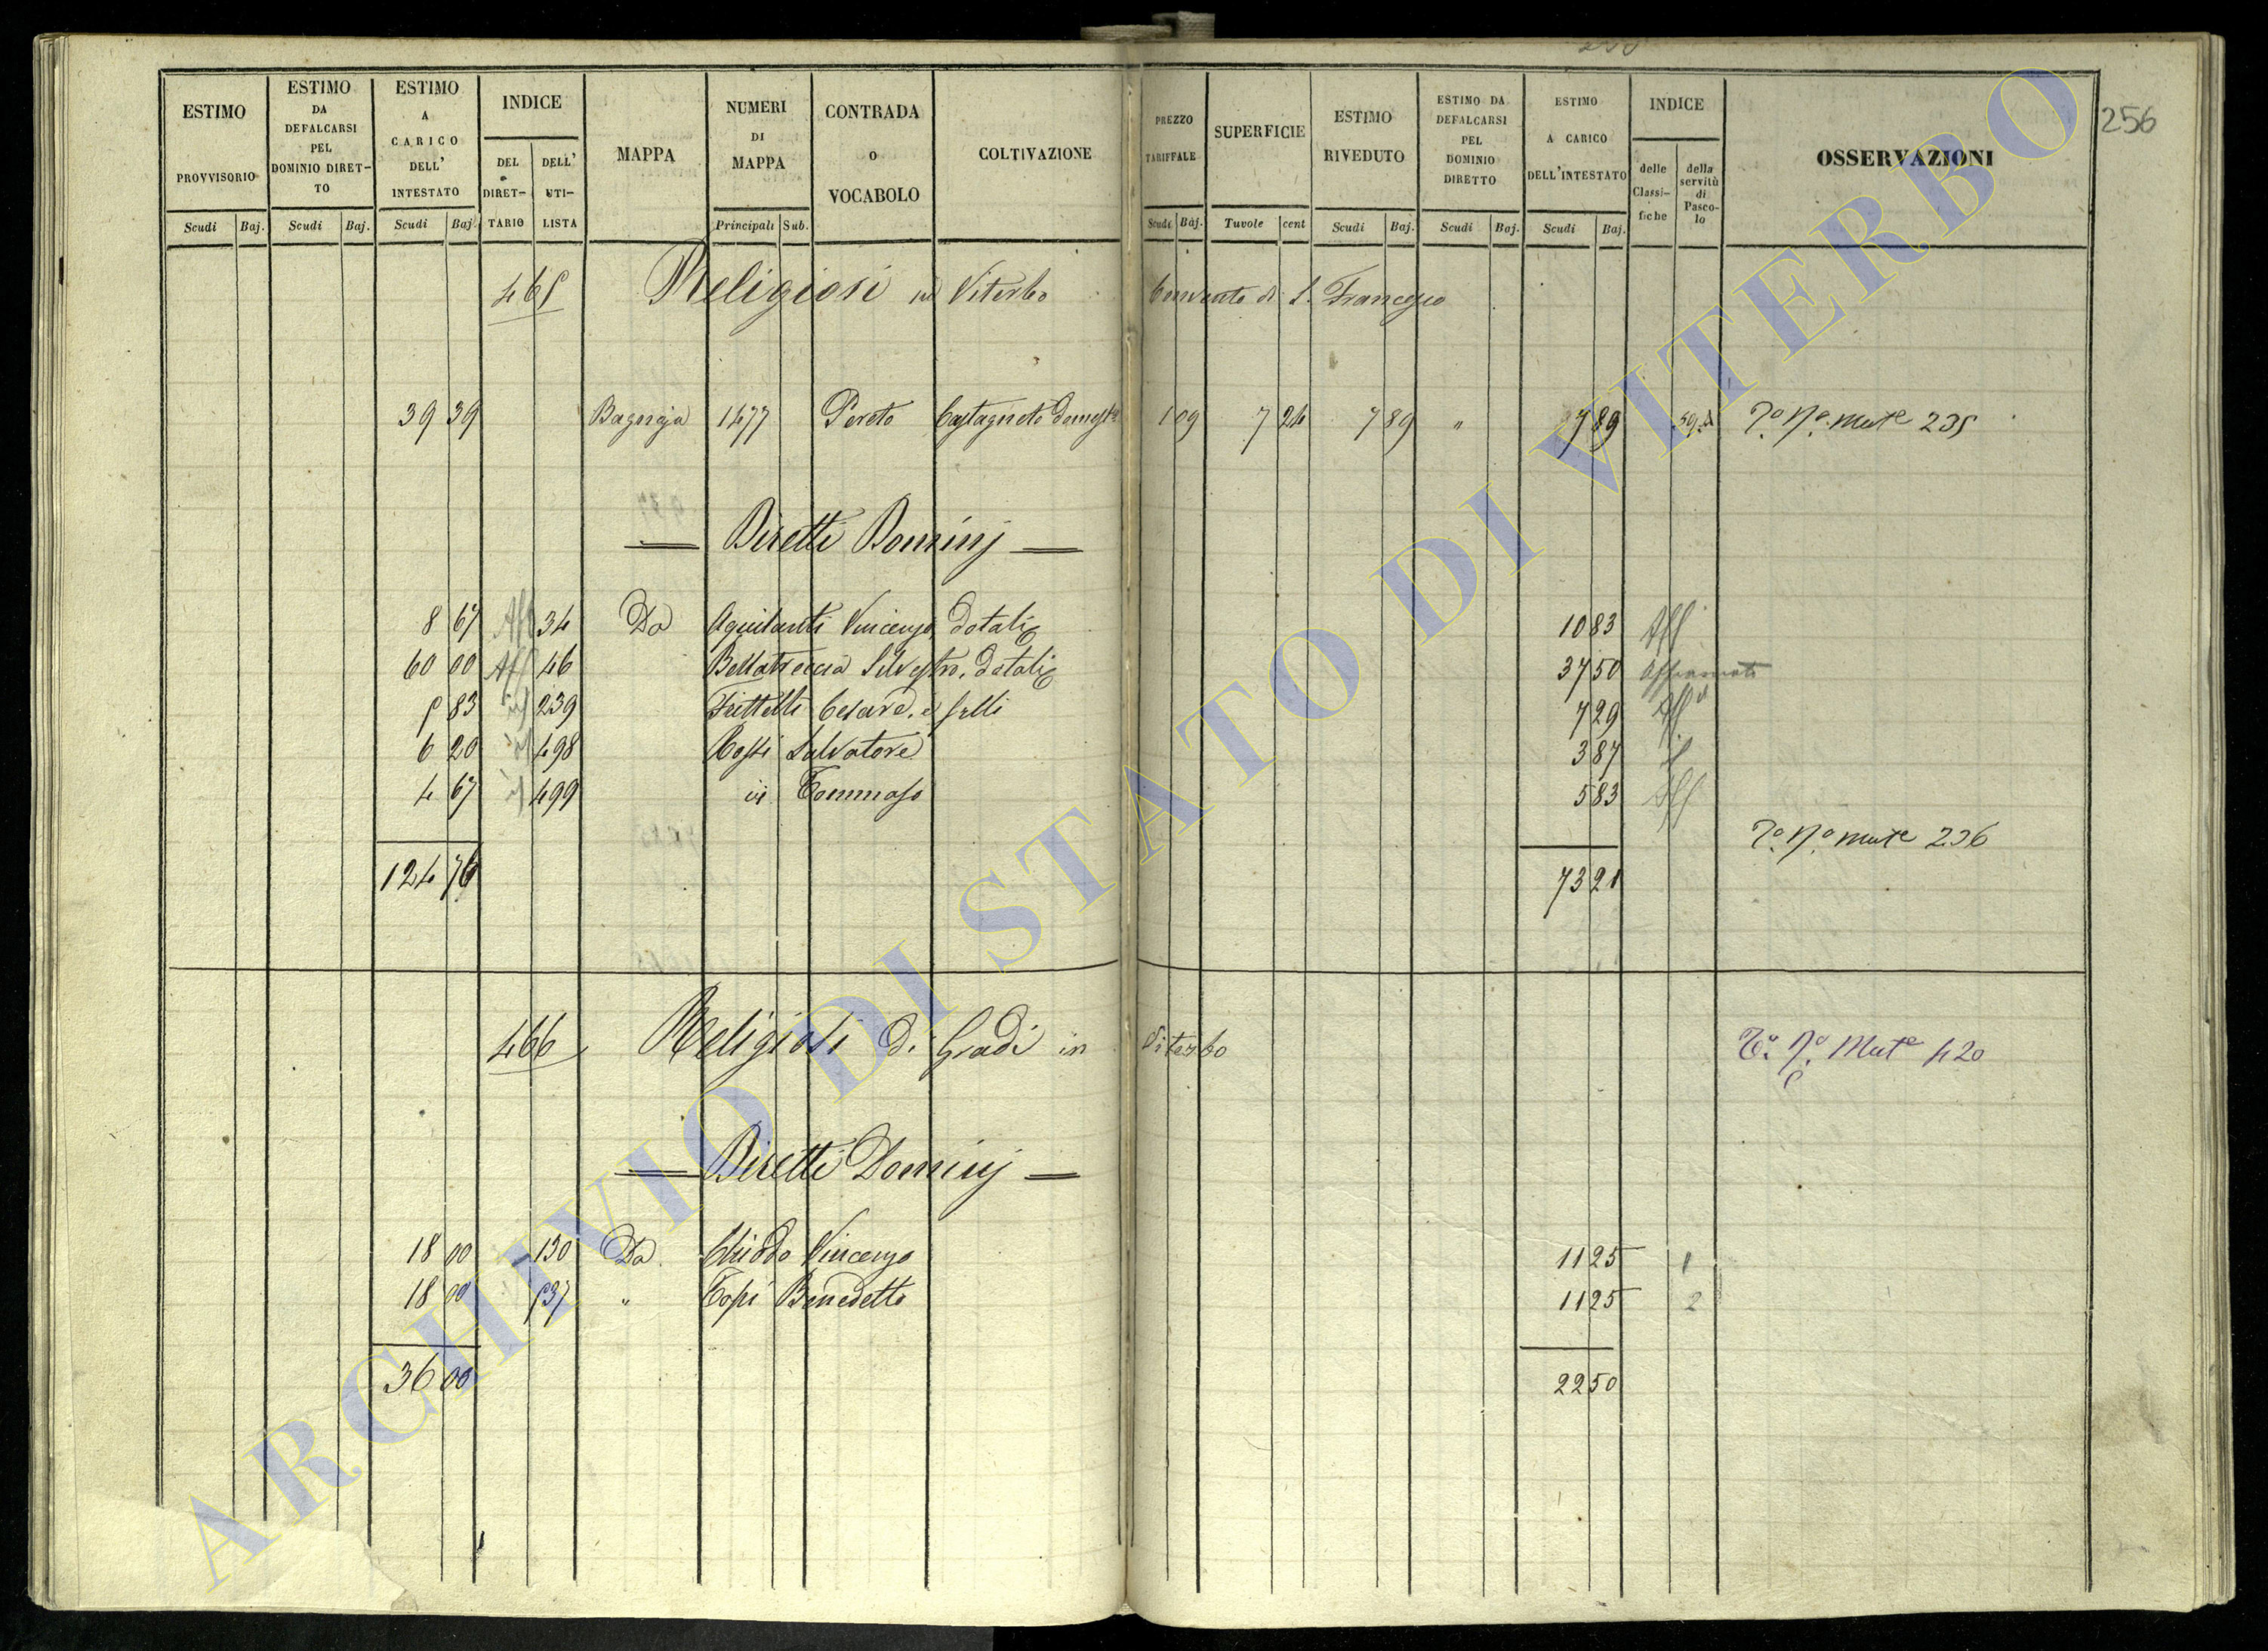 256
ESTIMO PROVVISORIO
ESTIMO DA DEFALCARSI PEL DOMINIO DIRET-TO
ESTIMO A CARICO DELL' INTESTATO
INDICE
DEL DIRET-TARIO
DELL' UTI-LISTA
MAPPA
NUMERI DI MAPPA
CONTRADA O VOCABOLO
COLTIVAZIONE
PREZZO TARIFFALE
SUPERFICIE
ESTIMO RIVEDUTO
ESTIMO DA DEFALCARSI PEL DOMINIO DIRETTO
ESTIMO A CARICO DELL'INTESTATO
INDICE
delle Classi-fiche
della servitù di Pasco-lo
OSSERVAZIONI
Scudi Baj. Scudi Baj. Scudi Baj. Principali Sub. Scudi Baj. Tavole cent Scudi Baj. Scudi Baj. Scudi Baj.
465 Religiosi in Viterbo Convento di S. Francesco
39 39 Bagnaja 1477 Pereto Castagneto domestº 1 09 7 24 7 89 " 7 89 Tº Nº Mutе 235
Diretti Dominj
8 67 Aff 34 Da Aquilanti Vincenzo, dotali 10 83 Aff
60 00 Aff 46 Bellatreccia Silvestro, dotali 37 50 Affrancato
5 83 id 239 Frittelli Cesare, e flli 7 29 Aff
6 20 id 498 Rossi Salvatore 3 87 id
4 67 id 499 id Tommaso 5 83 Aff
Tº Nº Mute 236
124 76 73 21
466 Religiosi di Gradi in Viterbo Tº Nº Mute 420
Diretti Dominj
18 00 130 Da Chiodo Vincenzo 11 25 1
18 00 537 " Topi Benedetto 11 25 2
36 00 22 50
ARCHIVIO DI STATO DI VITERBO